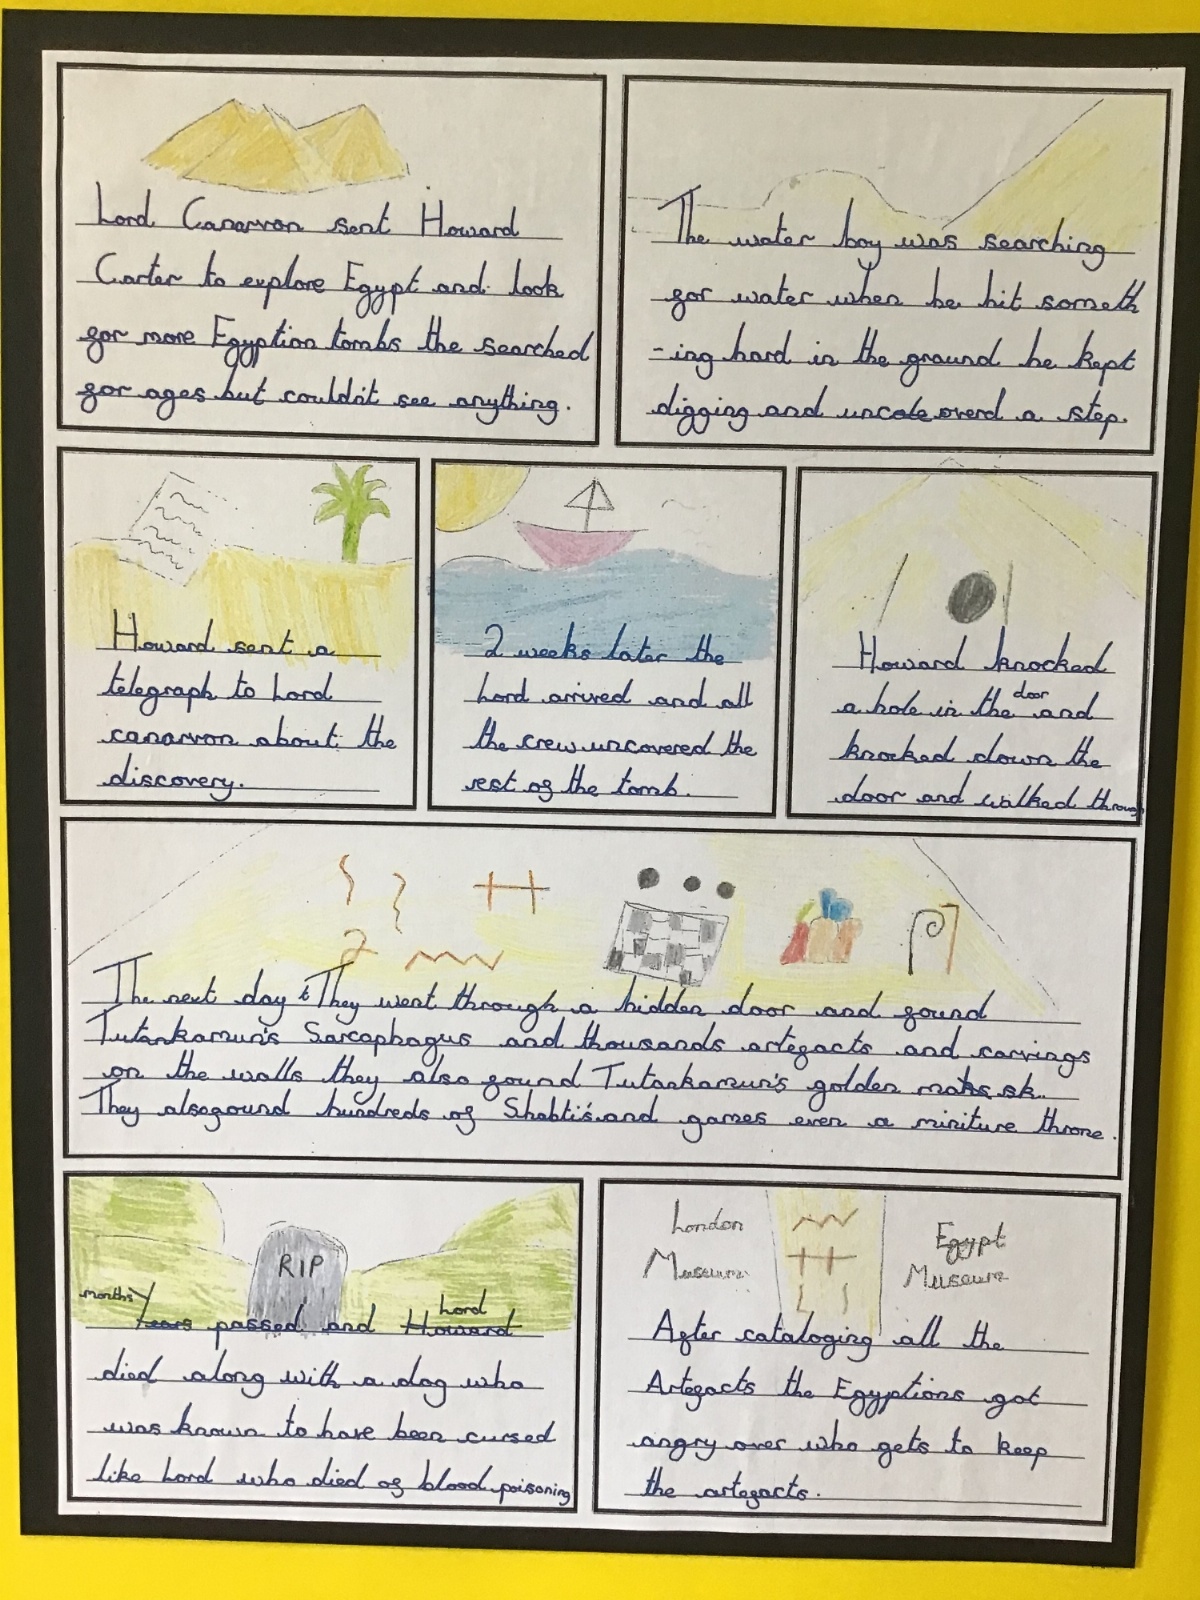 Lord Canarvon sent Howard
Carter to explore Egypt and look
for more Egyption tombs the searched
for ages but couldn't see anything.
The water boy was searching
for water when he hit someth
-ing hard in the ground he kept
digging and uncoleoverd a step.
Howard sent a
telegraph to Lord
canarvon about the
discovery.
2 weeks later the
Lord arrived and all
the crew uncovered the
rest of the tomb.
Howard knocked
a hole in the door and
knocked down the
door and walked through
The next day They went through a hidden door and found
Tutankamun's Sarcophagus and thousands artefacts and carvings
on the walls they also found Tutankamun's golden mask.
They also found hundreds of Shabti's and games even a miniture throne.
RIP
months Years passed and Lord Howard
died along with a dog who
was known to have been cursed
like Lord who died of blood poisoning
London
Museum
Egypt
Museum
After cataloging all the
Artefacts the Egyptions got
angry over who gets to keep
the artefacts.